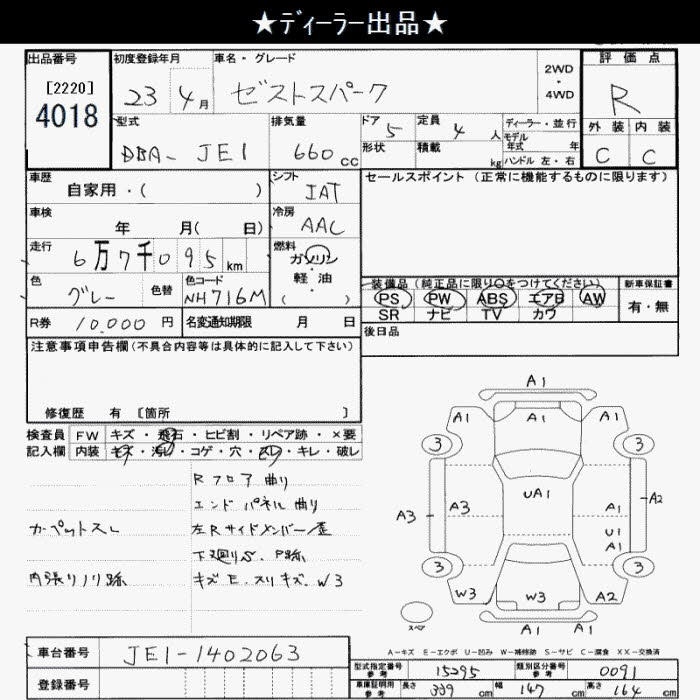 ★ディーラー出品★
出品番号 初度登録年月 車名・グレード 2WD・4WD 評価点
[2220]
4018
23 4月 ゼストスパーク R
型式 排気量 ドア 定員 ディーラー・並行 外装 内装
DBA- JE1 660cc 5 4人 モデル年式 年
形状 積載 kg ハンドル 左・右 C C
車歴 シフト セールスポイント (正常に機能するものに限ります)
自家用・( ) IAT
車検 冷房
年 月( 日) AAC
走行 燃料
6万7千095km ガソリン
色 色替 色コード 軽油
グレー NH716M ( ・ )
装備品 (純正品に限り○をつけてください) 新車保証書
PS PW ABS エアB AW 有・無
SR ナビ TV カワ
R券 10,000円 名変通知期限 月 日 後日品
注意事項申告欄(不具合内容等は具体的に記入して下さい)
修復歴 有 [箇所 ]
検査員 FW キズ・飛石・ヒビ割・リペア跡・×要
記入欄 内装 キズ・汚レ・コゲ・穴・スレ・キレ・破レ
Rフロア曲り
エンドパネル曲り
カーペットスレ 左Rサイドメンバー歪
下廻りS、P跡
内張りノリ跡 キズ E、スリキズ、W3
A1
A1 A1
3 3
UA1
A3 A3 A1 A2
U1
A1
3 3
W3 W3 A2
スペア A1 A1
A-キズ E-エクボ U-凹み W-補修跡 S-サビ C-腐食 XX-交換済
車台番号 JE1-1402063
型式指定番号 参考 15295 類別区分番号 参考 0091
登録番号 車庫証明用 参考 長さ 339cm 幅 147cm 高さ 164cm